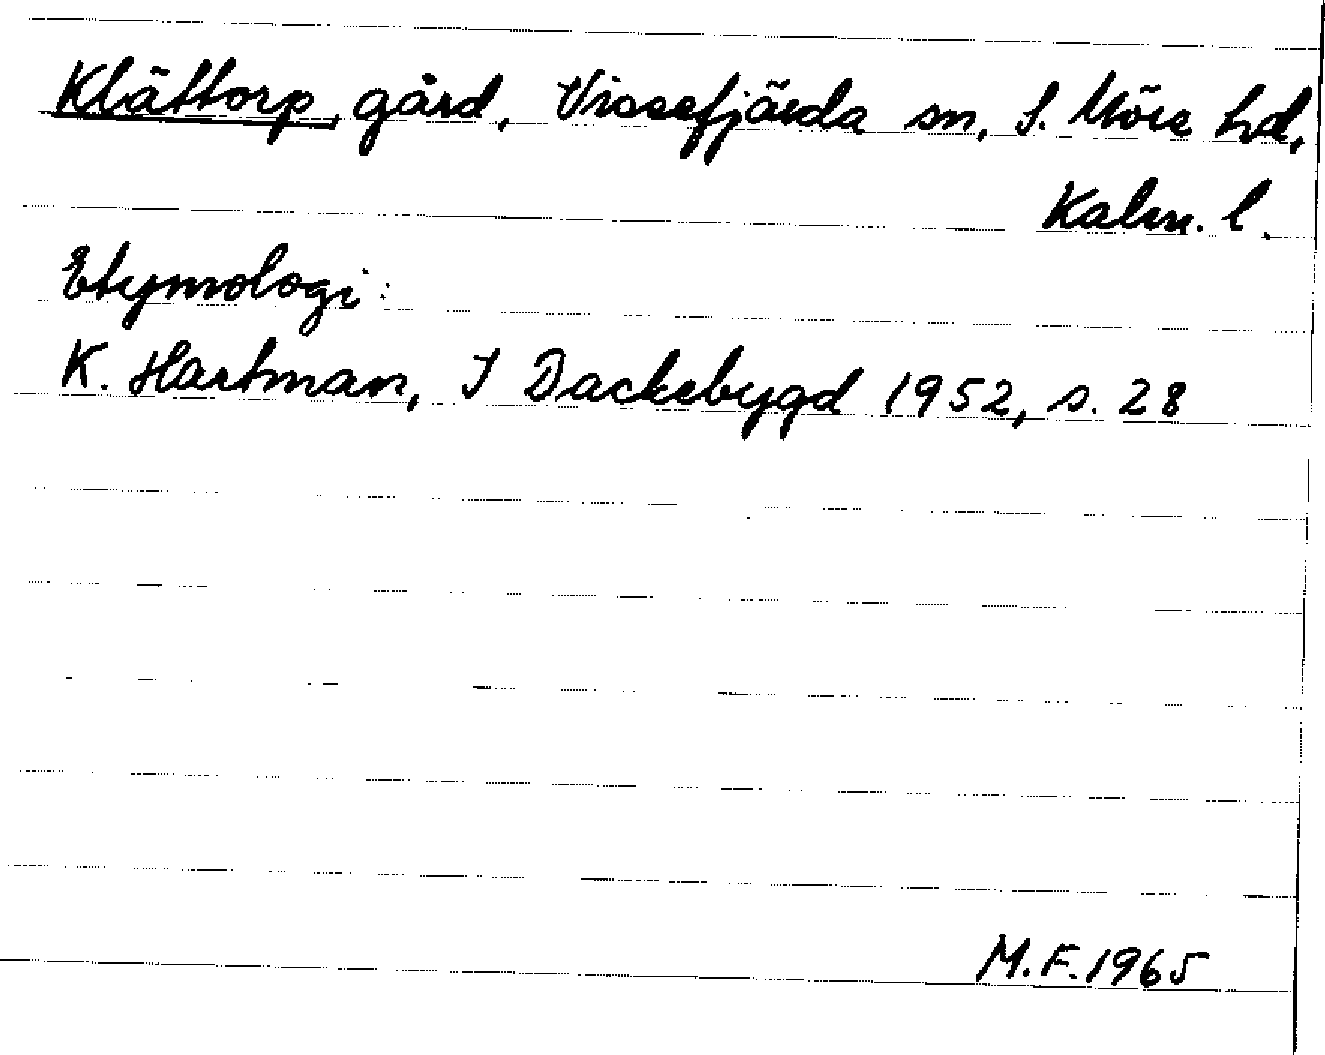 Klättorp, gård, Vissefjärda sn, S. Möre hd,
Kalm. l.
Etymologi:
K. Hartman, I Dackebygd 1952, s. 28
M.F. 1965